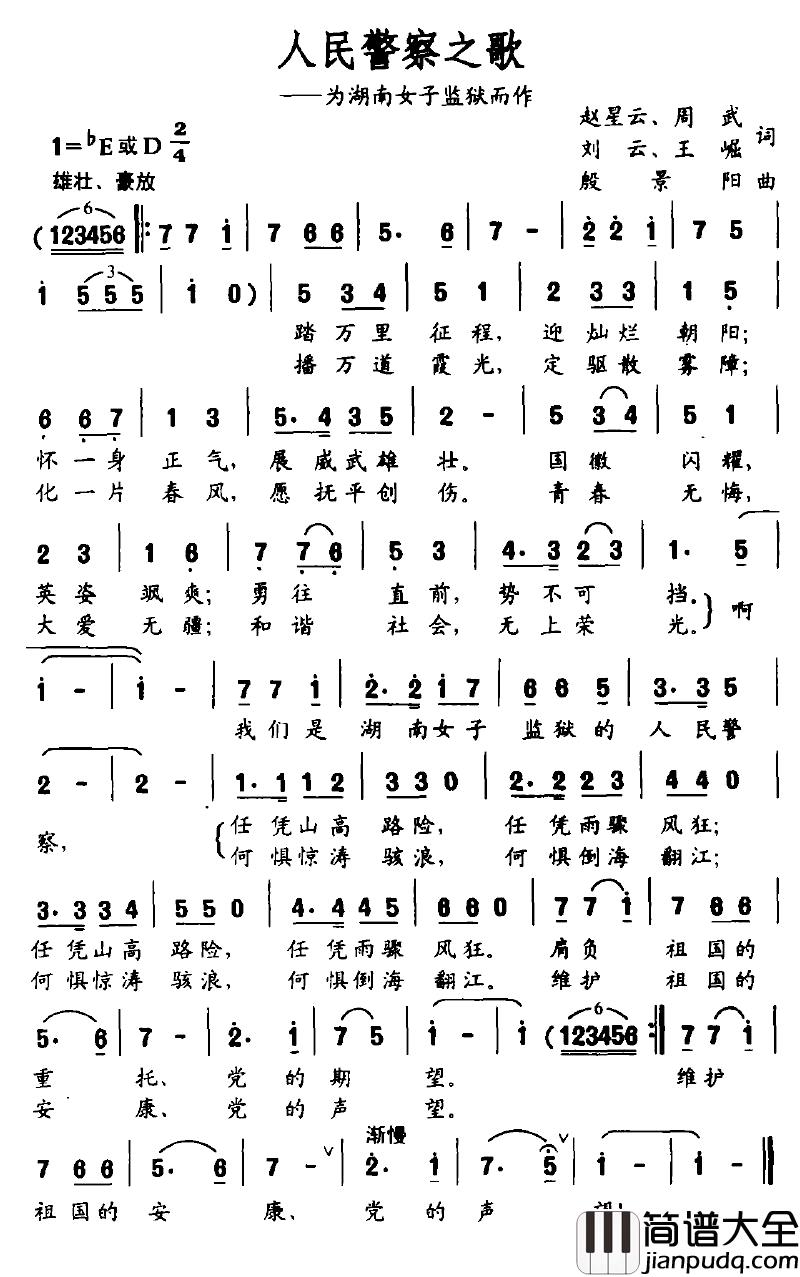 人民警察之歌
——为湖南女子监狱而作
赵星云、周 武
刘 云、王 崛 词
殷 景 阳 曲
1=♭E或D 2/4
雄壮、豪放
6
(123456 ‖: 7 7 i | 7 6 6 | 5· 6 | 7 - | 2 2 i | 7 5
3
i 5 5 5 | i 0 ) | 5 3 4 | 5 1 | 2 3 3 | 1 5
踏 万 里 征 程, 迎 灿 烂 朝 阳;
播 万 道 霞 光, 定 驱 散 雾 障;
6 6 7 | 1 3 | 5· 4 3 5 | 2 - | 5 3 4 | 5 1
怀 一 身 正 气, 展 威 武 雄 壮。 国 徽 闪 耀,
化 一 片 春 风, 愿 抚 平 创 伤。 青 春 无 悔,
2 3 | 1 6 | 7 7 6 | 5 3 | 4· 3 2 3 | 1· 5
英 姿 飒 爽; 勇 往 直 前, 势 不 可 挡。 啊
大 爱 无 疆; 和 谐 社 会, 无 上 荣 光。
i - | i - | 7 7 i | 2· 2 i 7 | 6 6 5 | 3· 3 5
我 们 是 湖 南 女 子 监 狱 的 人 民 警
2 - | 2 - | 1· 1 1 2 | 3 3 0 | 2· 2 2 3 | 4 4 0
察, 任 凭 山 高 路 险, 任 凭 雨 骤 风 狂;
何 惧 惊 涛 骇 浪, 何 惧 倒 海 翻 江;
3· 3 3 4 | 5 5 0 | 4· 4 4 5 | 6 6 0 | 7 7 i | 7 6 6
任 凭 山 高 路 险, 任 凭 雨 骤 风 狂。 肩 负 祖 国 的
何 惧 惊 涛 骇 浪, 何 惧 倒 海 翻 江。 维 护 祖 国 的
6
5· 6 | 7 - | 2· i | 7 5 | i - | i (123456 :‖ 7 7 i
重 托、 党 的 期 望。 维 护
安 康、 党 的 声 望。
渐慢
7 6 6 | 5· 6 | 7 - ∨ | 2· i | 7· 5 ∨ | i - | i - ‖
祖 国 的 安 康、 党 的 声
简谱大全
jianpudq.com